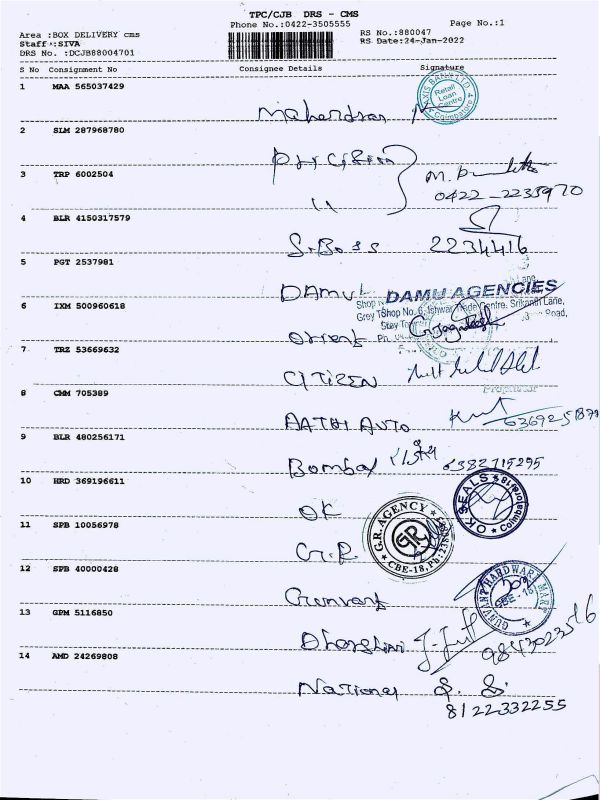 TPC/CJB DRS - CMS
Phone No.:0422-3505555
Page No.:1
Area :BOX DELIVERY cms
Staff :SIVA
DRS No. :DCJB88004701
RS No.:880047
RS Date:24-Jan-2022
S No Consignment No Consignee Details Signature
1 MAA 565037429
AXIS BANK LTD
Retail Loan Centre
Coimbatore
2 SLM 287968780
3 TRP 6002504
"
0422-2235970
4 BLR 4150317579
S.Boss 2234416
5 PGT 2537981
DAMU
DAMU AGENCIES
Shop No. 6, Ishwar Trade Centre, Srikanth Lane,
6 IXM 500960618
Orient
7 TRZ 53669632
CITIZEN
8 CMM 705389
AATHI AUTO
9 BLR 480256171
Bombay 6382715295
10 HRD 369196611
OK
OK SEALS
Coimbatore
11 SPB 10056978
G.R
G.R. AGENCY
GR
CBE-18,
12 SPB 40000428
Gunvant
GUNVANT HARDWARE MART
CBE-18
13 GPM 5116850
14 AMD 24269808
National S. S.
8122332255